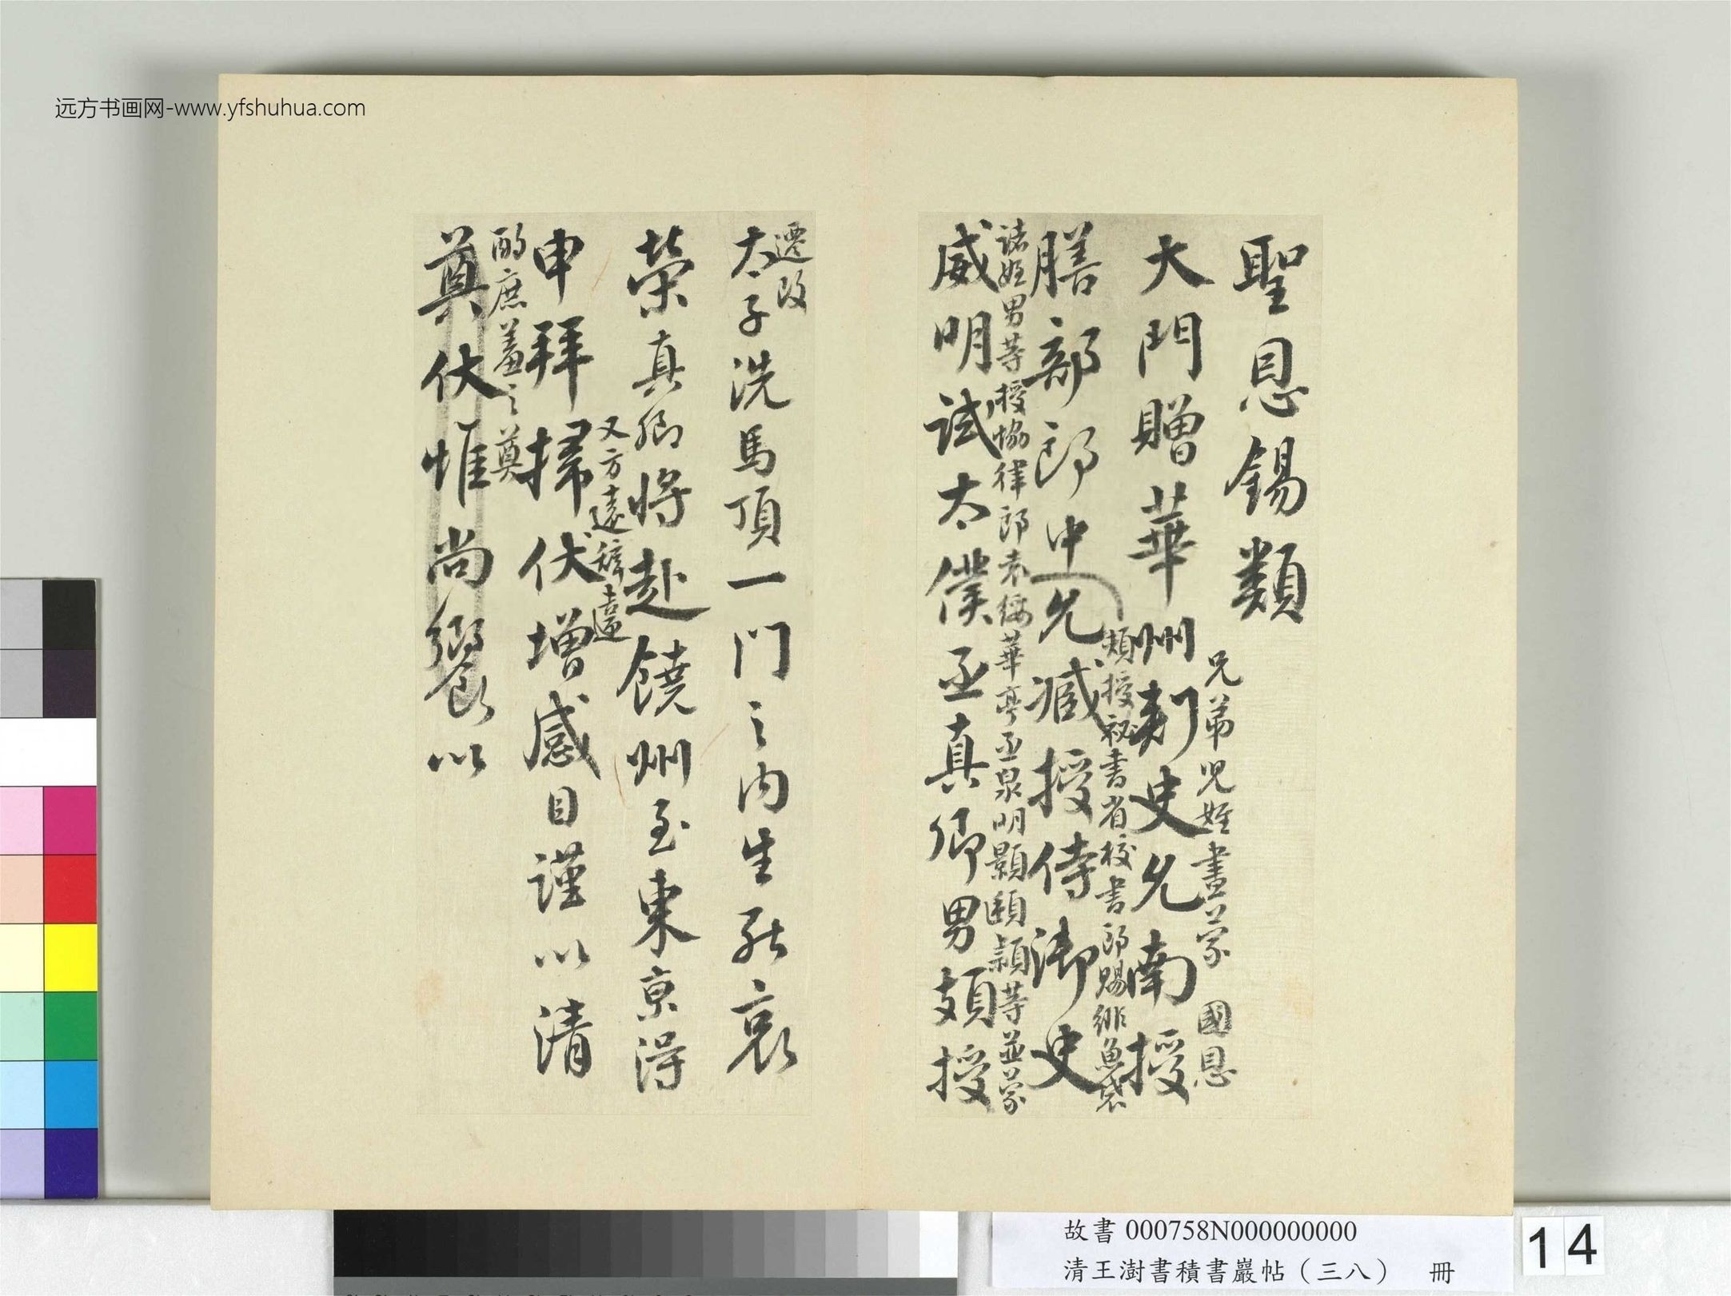 远方书画网-www.yfshuhua.com
聖恩錫類
兄弟児姪盡蒙 國恩
大門贈華州刺史允南授
授祕書省校書郎賜緋魚袋
膳部郎中允臧授侍御史
諸姪男等授協律郎華亭丞泉明顥頤頴等並蒙
威明試太僕丞真卿男頗授
遷改
太子洗馬頂一門之內生死哀
榮真卿將赴饒州至東京得
又方遠辭違
申拜掃伏增感目謹以清
酌庶羞之奠
奠伏惟尚饗以
故書 000758N000000000
清王澍書積書巖帖（三八） 冊
14